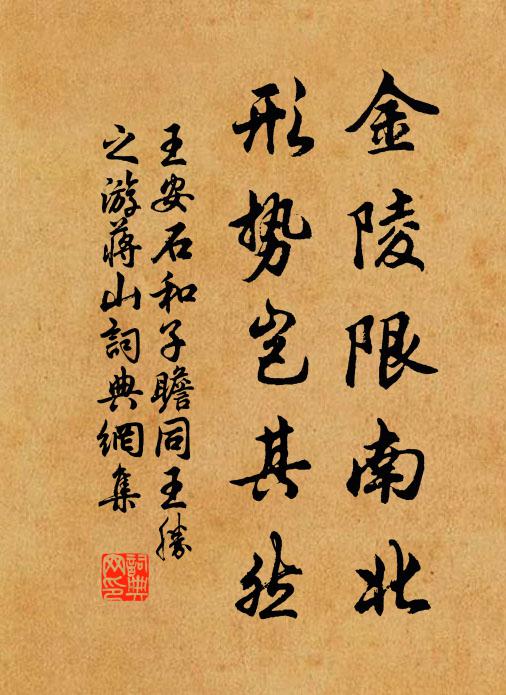 金陵限南北
形势岂其然
王安石和子瞻同王勝
之游蔣山詞典網集
詞典
网印